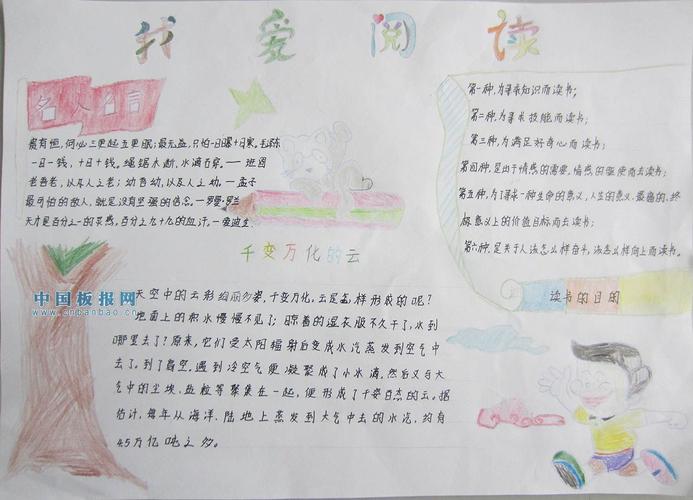 我爱阅读
名人名言
贵有恒,何必三更起五更眠;最无益,只怕一日曝十日寒。毛泽东
一日一钱,十日十钱。绳锯木断,水滴石穿。——班固
老吾老,以及人之老;幼吾幼,以及人之幼。—孟子
最可怕的敌人,就是没有坚强的信念。—罗曼·罗兰
天才是百分之一的灵感,百分之九十九的血汗。—爱迪生
第一种,为寻求知识而读书;
第二种,为寻求技能而读书;
第三种,为满足好奇心而读书;
第四种,是出于情感的需要,情感的驱使而去读书;
第五种,为了寻求一种生命的意义,人生的意义、最高的、终
极意义上的价值目标而去读书;
第六种,是关于人该怎么样奋斗,该怎么样向上而读书。
读书的目的
千变万化的云
天空中的云彩绚丽多姿,千变万化,云是怎样形成的呢?
地面上的积水慢慢不见了;晾着的湿衣服不久干了,水到
哪里去了?原来,它们受太阳辐射后变成水汽蒸发到空气中
去了。到了高空,遇到冷空气便凝聚成了小水滴,然后又与大
气中的尘埃、盐粒等聚集在一起,便形成了千姿百态的云。据
估计,每年从海洋、陆地上蒸发到大气中去的水汽,约有
4.5万亿吨之多。
中国板报网
www.cnbanbao.cn